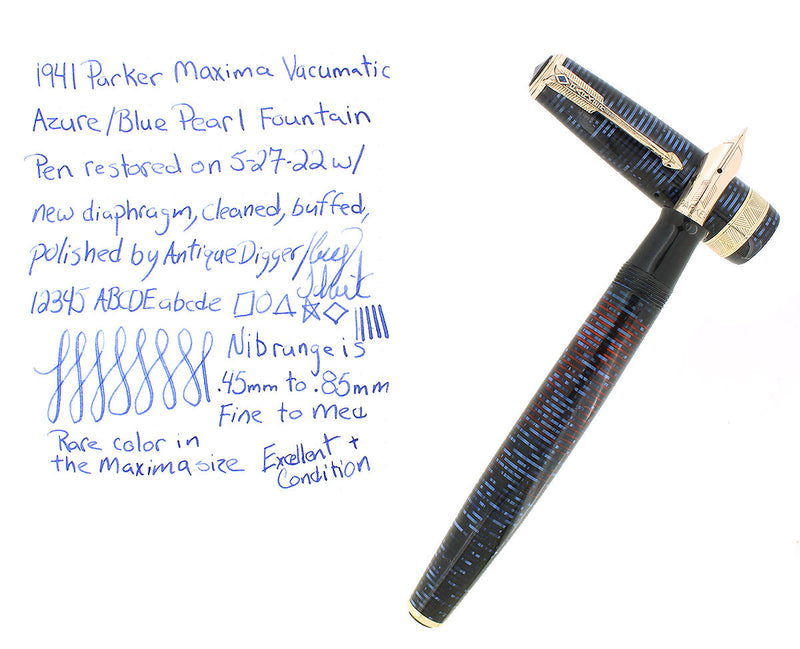 1941 Parker Maxima Vacumatic
Azure/Blue Pearl Fountain
Pen restored on 5-27-22 w/
new diaphragm, cleaned, buffed,
polished by Antique Digger/
12345 ABCDE abcde
Nib range is
.45mm to .85mm
Fine to Med
Rare color in
the Maxima size
Excellent +
Condition